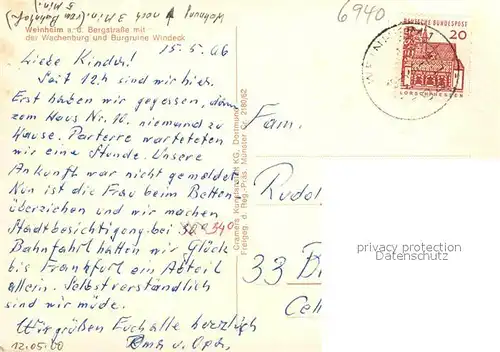 Wohnung noch 3 Min. (von Bahnhof 5 Min.)
6940
Weinheim a. d. Bergstraße mit
der Wachenburg und Burgruine Windeck
15.5.66
DEUTSCHE BUNDESPOST
20
LORSCH/HESSEN
Liebe Kinder!
Seit 12h sind wir hier.
Erst haben wir gegessen, dann
zum Haus Nr. 16. niemand zu
Hause. Parterre warteteten
wir eine Stunde. Unsere
Ankunft war nicht gemeldet
Nun ist die Frau beim Betten-
überziehen und wir machen
Stadtbesichtigung bei
Bahnfahrt hatten wir Glück
bis Frankfurt ein Abteil
allein. Selbstverständlich
sind wir müde.
Wir grüßen Euch alle herzlich
Oma u. Opa.
12.05.00
Cramers Kunstanstalt KG, Dortmund
Freigeg. d. Reg.-Präs. Münster Nr. 2180/62
Fam.
Rudol
33 B
Cell
privacy protection
Datenschutz